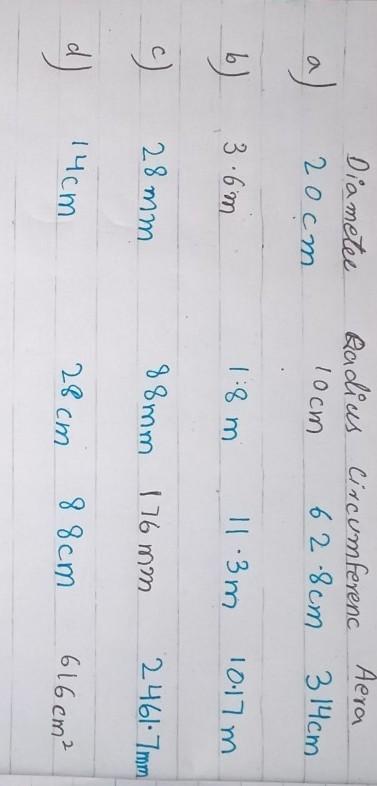 Diameter Radius circumferenc Aera
a) 20cm 10cm 62.8cm 314cm
b) 3.6m 1.8m 11.3m 10.17m
c) 28mm 88mm 176mm 2461.7mm
d) 14cm 28cm 88cm 616cm²